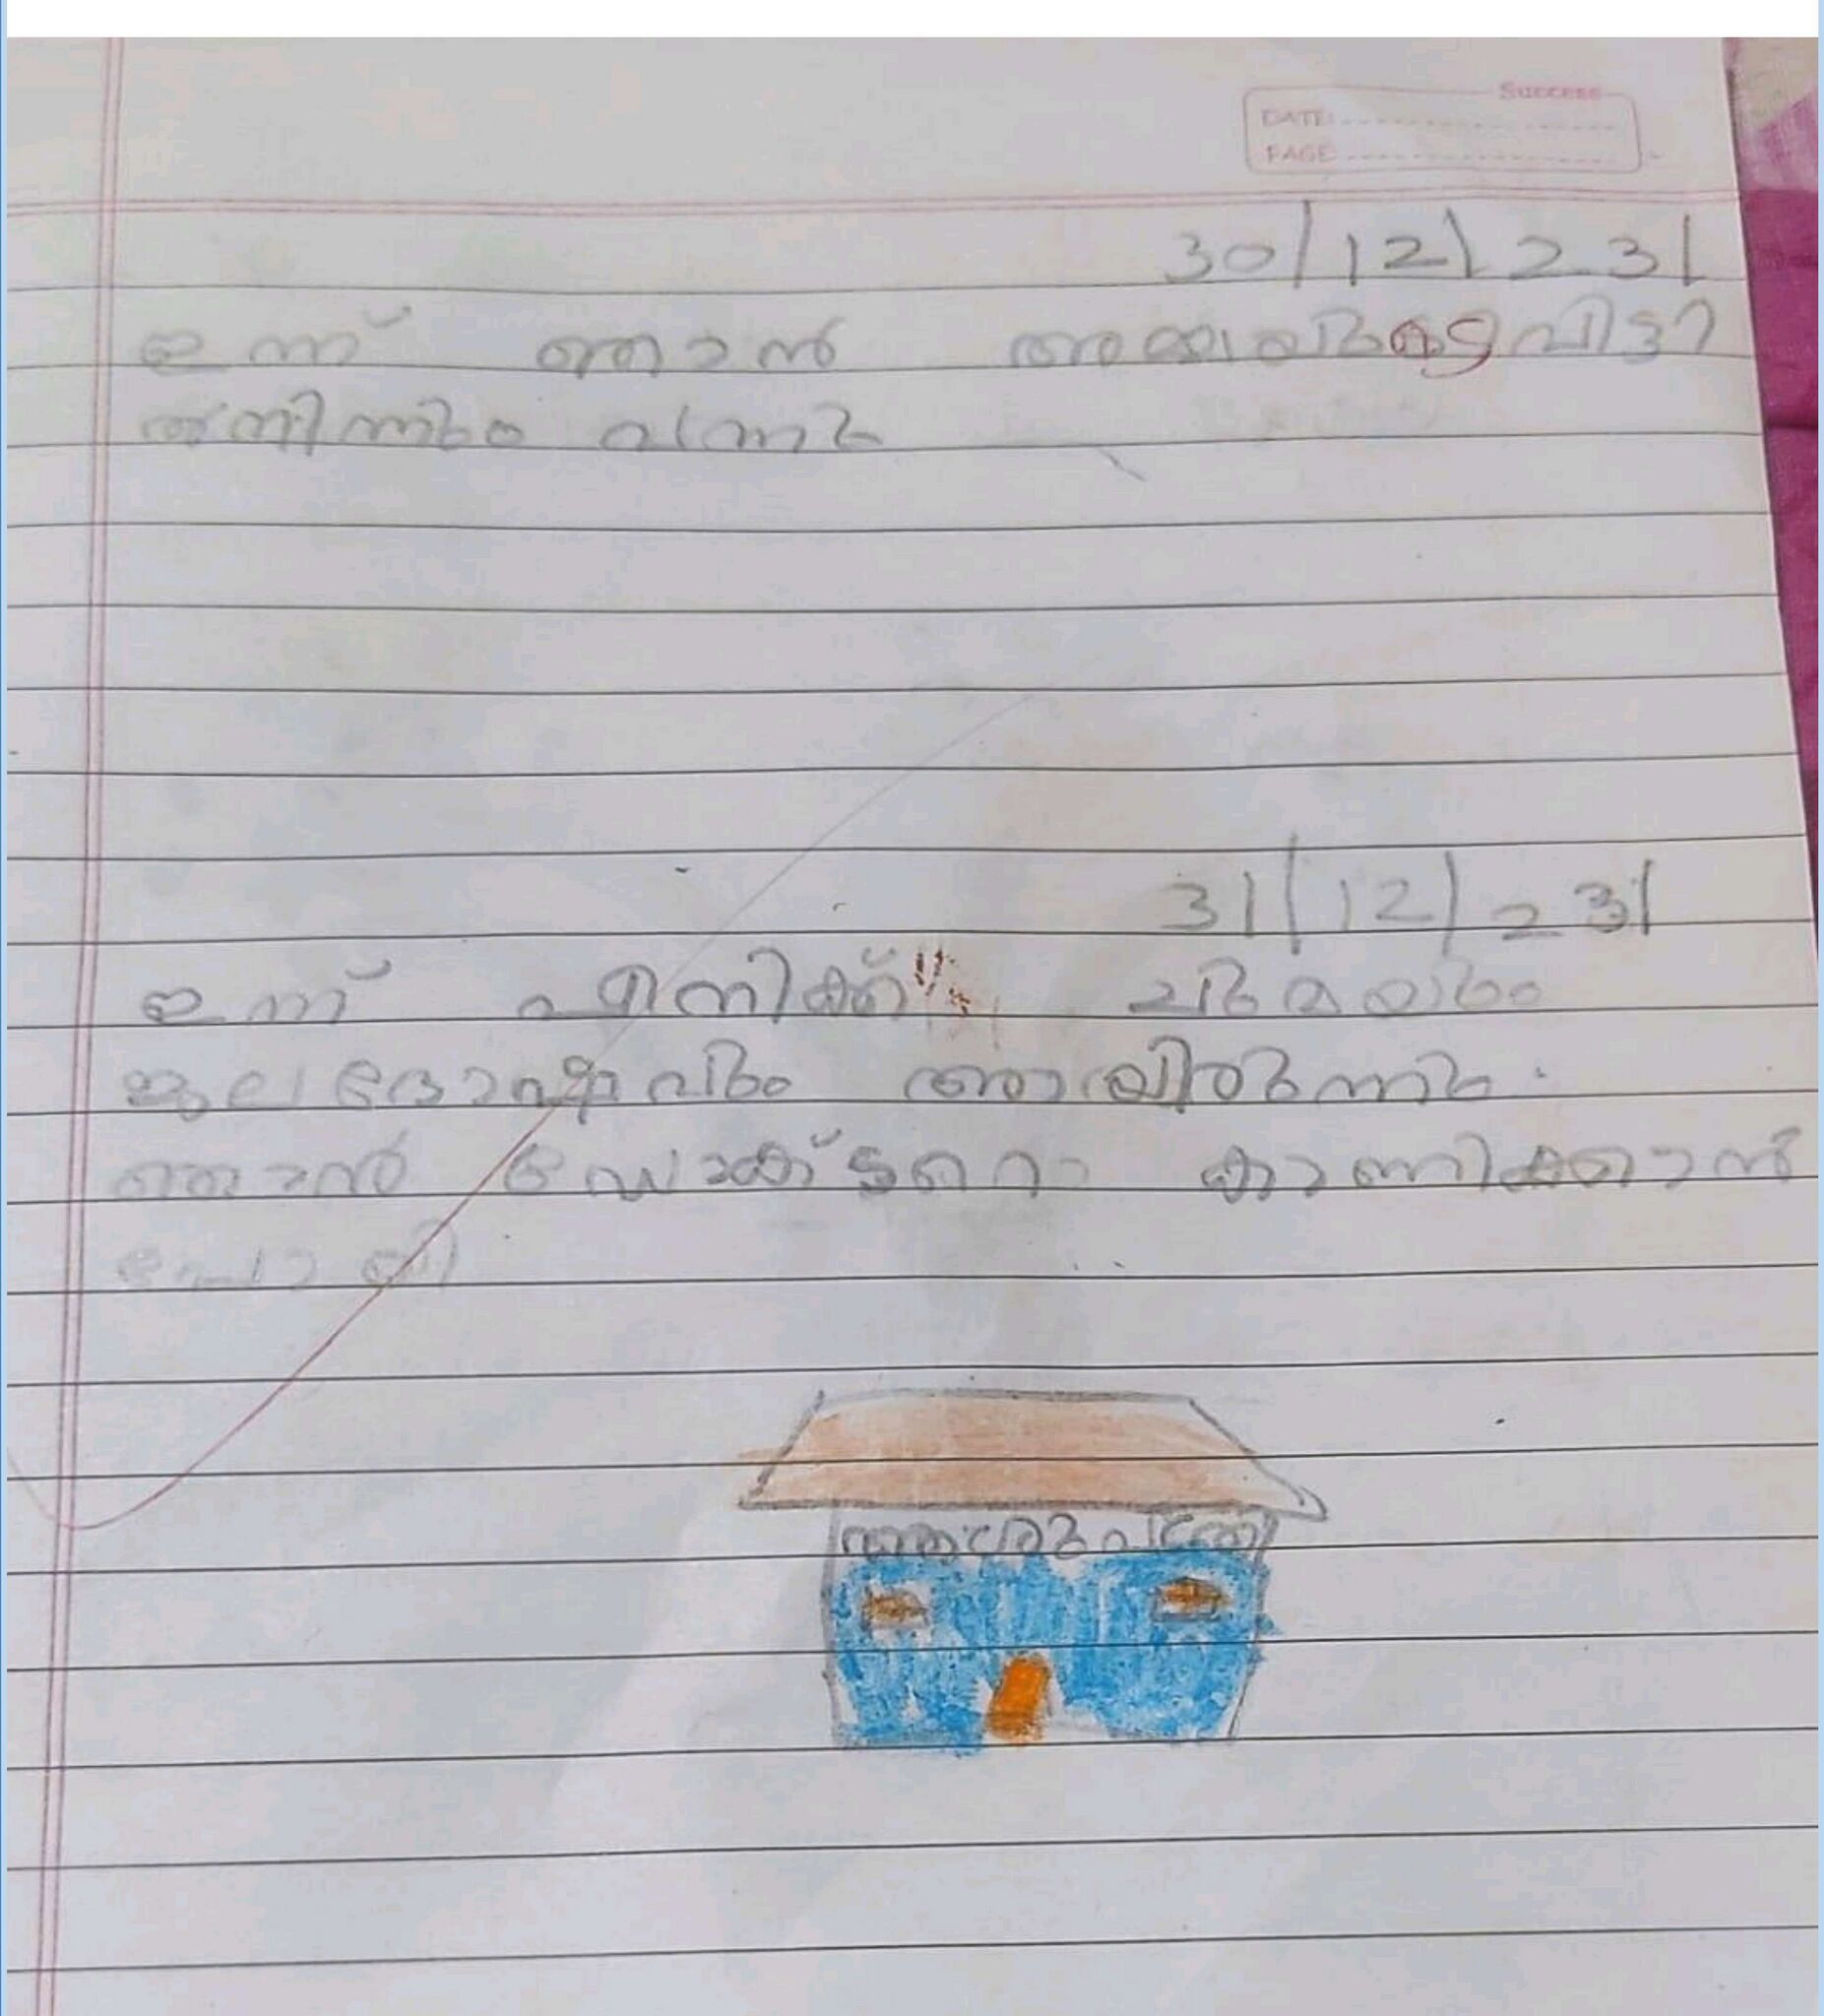 Success
DATE:
PAGE:
30/12/23/
ഇന്ന് ഞാൻ അമ്മയുടെ വിട്ടി
ൽനിന്നും വന്നു
31/12/23/
ഇന്ന് എനിക്ക് ചുമയും
ജലദോഷവും ആയിരുന്നു.
ഞാൻ ഡോക്ടറെ കാണിക്കാൻ
പോയി
ആശുപത്രി